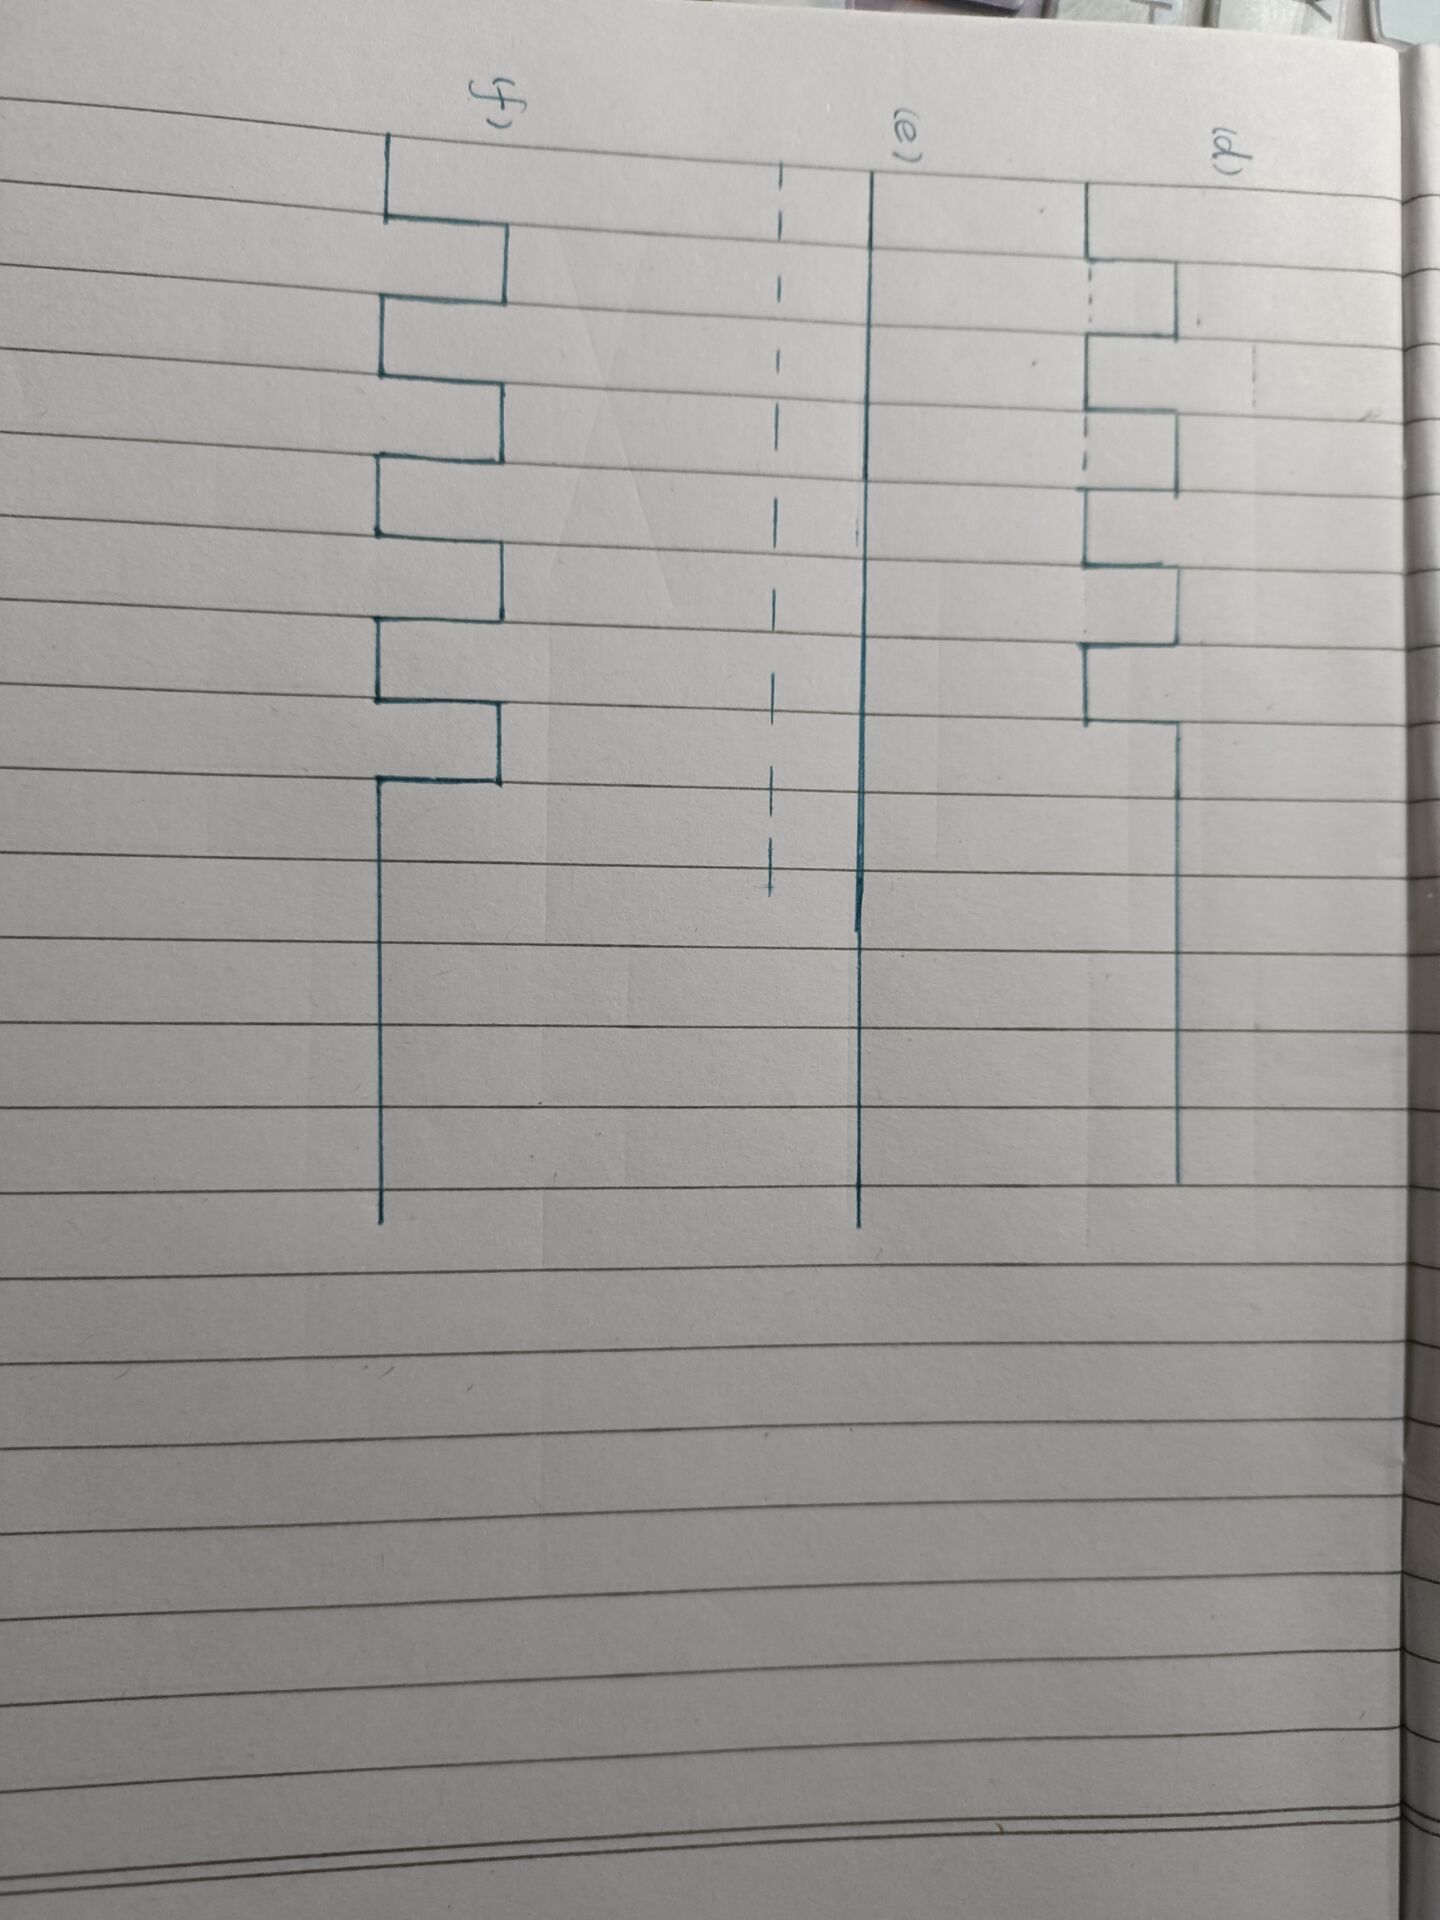 (d)
(e)
(f)